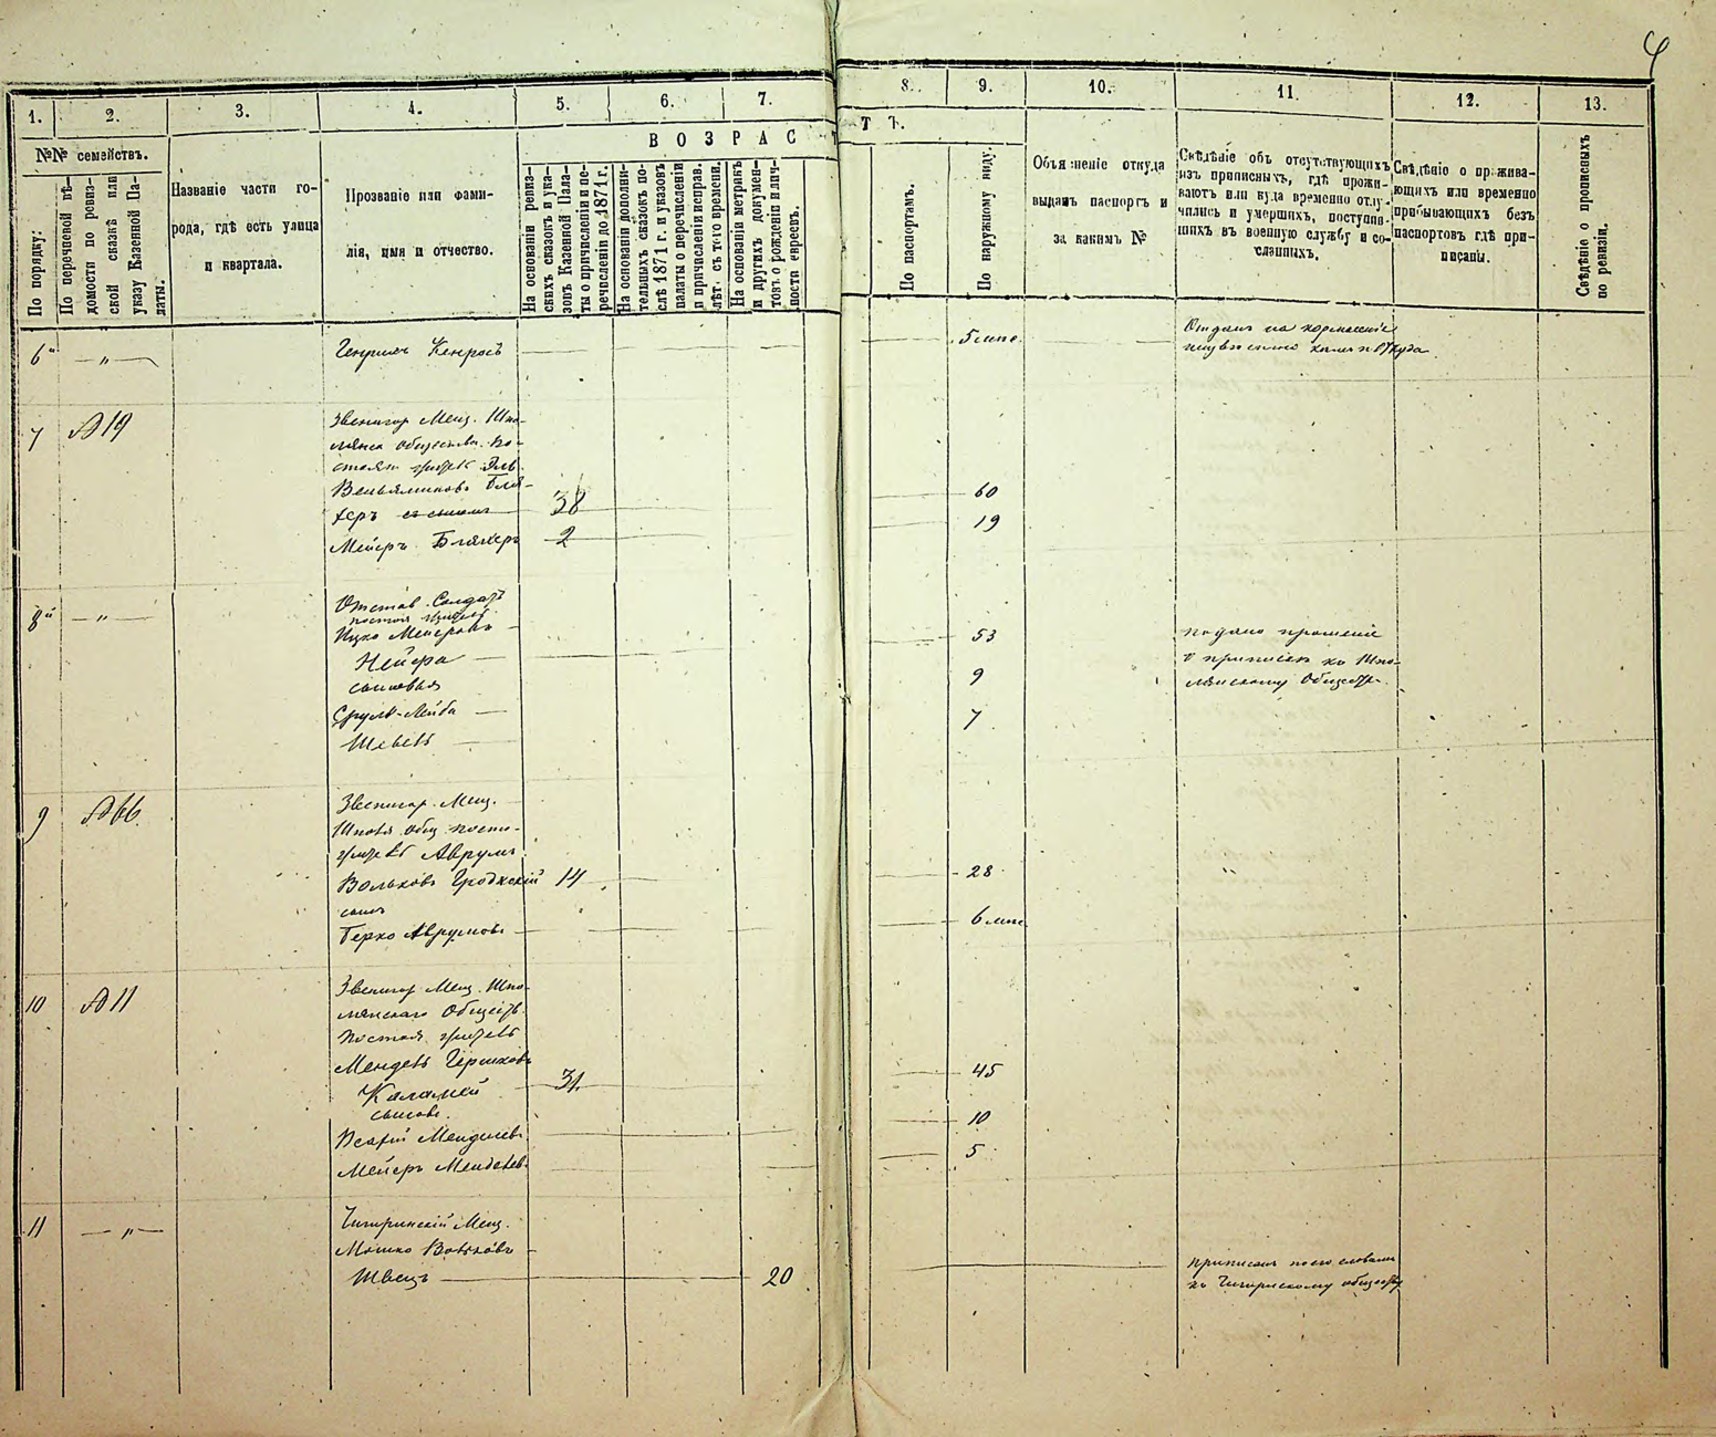 4
1. 2. 3. 4. 5. 6. 7. 8. 9. 10. 11. 12. 13.
ВОЗРАСТЪ.
№№ семействъ.
По порядку:
По перечневой вѣ-
домости по ревиз-
ской сказкѣ или
указу Казенной Па-
латы.
Названіе части го-
рода, гдѣ есть улица
и квартала.
Прозваніе или фами-
лія, имя и отчество.
На основаніи ревиз-
скихъ сказокъ и ука-
зовъ Казенной Пала-
ты о причисленіи и пе-
речисленіи до 1871 г.
На основаніи дополни-
тельныхъ сказокъ по-
слѣ 1871 г. и указовъ
палаты о перечисленіи
и причисленіи неправ.
лѣт. съ того времени.
На основаніи метрикъ
и другихъ докумен-
товъ о рожденіи и лич-
ности евреевъ.
По паспортамъ.
По наружному виду.
Объясненіе откуда
выданъ паспортъ и
за какимъ №
Свѣдѣніе объ отсутствующихъ
изъ приписныхъ, гдѣ прожи-
ваютъ или куда временно отлу-
чились и умершихъ, поступив-
шихъ въ военную службу и со-
сланныхъ.
Свѣдѣніе о прожива-
ющихъ или временно
прибывающихъ безъ
паспортовъ гдѣ при-
писаны.
Свѣдѣніе о прописныхъ
по ревизіи.
6й — " —
5 мпс.
Отданъ на кормленіе
7 №19
Звенигор Мещ. Шпо-
лянск общества. По-
стоян жител
Веньяминовъ Бля-
херъ съ сыномъ 38 60
Мейеръ Бляхеръ 2 19
8й — " —
Отстав. Солдатъ
постоян жител
Ицко Мейеровъ 53
Нейера
сыновья 9
Срулъ-Лейба 7
подано прошеніе
о припискѣ ко Шпо-
лянскому Обществ.
9 №66
Звенигор. Мещ.
Шполя общ. постоя-
жител Аврумъ
Вольковъ Гродскій 14 28
сынъ
Герко Аврумовъ 6 мпс
10 №11
Звенигор Мещ. Шпо-
лянскаго Обществ.
постоя жител
Мендель Гершковъ
31 45
сыновья.
10
Мейеръ Менделев. 5
11 — " —
Чигиринскій Мещ.
Мошко Вольковъ
Швецъ 20
приписанъ по его словамъ
къ Чигиринскому обществу